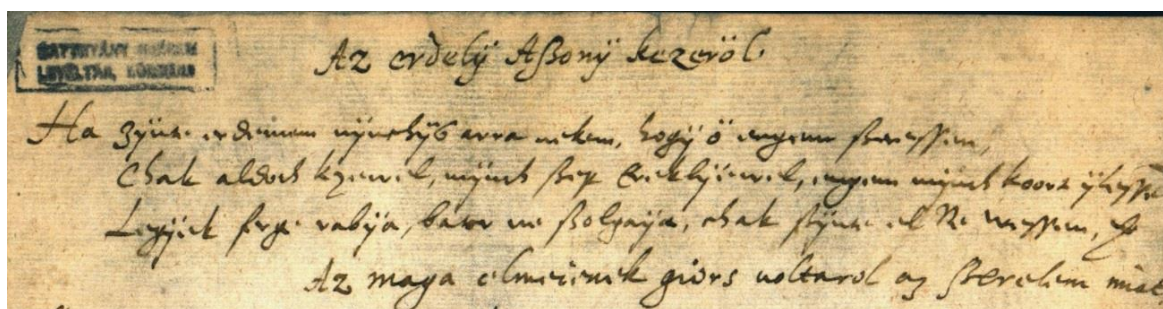 BATTHYÁNY MÚZEUM
LEVÉLTÁR, KÖRMEND
Az erdely Aßony kezeröl
Ha Zÿue erdemem nÿnchÿ arra nekem, hogÿ ö engem ßeressen,
Chak aldoth kezeuel, mÿnth ßep ereklÿeuel, engem mÿnth koort
Legÿek ferge rabÿa, bator ne ßolgaÿa, chak ßÿue el Ne wessen,
Az maga elmeienek giors uoltarol az ßerelem miat